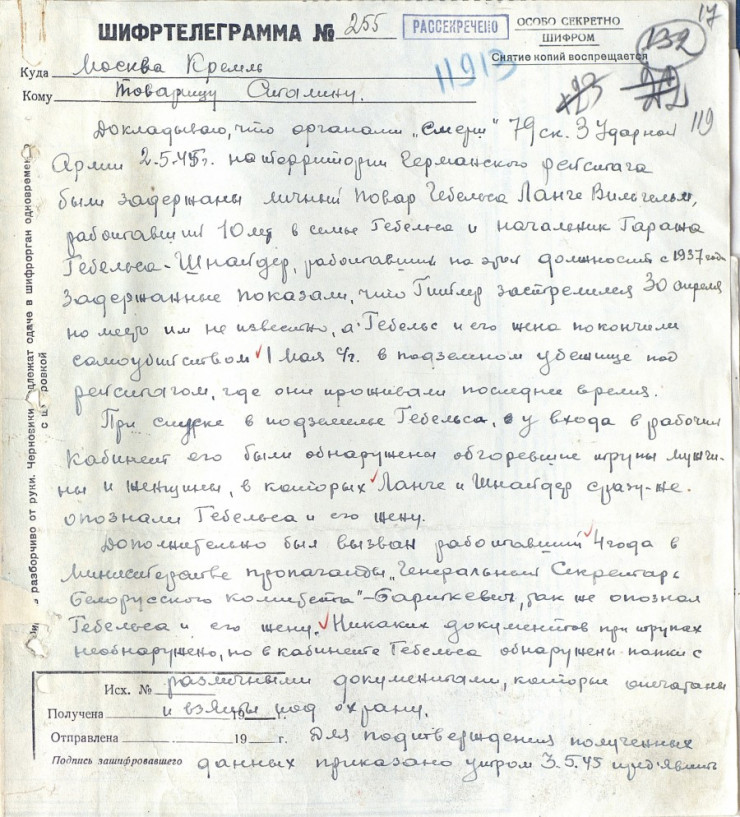 17
ШИФРТЕЛЕГРАММА № 255
РАССЕКРЕЧЕНО
ОСОБО СЕКРЕТНО
ШИФРОМ
Снятие копий воспрещается
132
Куда Москва Кремль
11913
Кому Товарищу Сталину.
119
Докладываю, что органами „Смерш" 79 ск. 3 Ударной
Армии 2.5.45г. на территории Германского рейстага
были задержаны личный повар Гебельса Ланге Вильгельм,
работавший 10 лет в семье Гебельса и начальник Гаража
Гебельса - Шнайдер, работавший на этой должности с 1937 года
Задержанные показали, что Гитлер застрелился 30 апреля
но место им не известно, а Гебельс и его жена покончили
самоубийством 1 Мая с/г. в подземном убежище под
рейстагом, где они проживали последнее время.
При спуске в подземелье Гебельса, у входа в рабочий
кабинет его были обнаружены обгоревшие трупы мужчи-
ны и женщины, в которых Ланге и Шнайдер сразу-же
опознали Гебельса и его жену.
Дополнительно был вызван работавший 4 года в
Министерстве пропаганды „Генеральный Секретарь
Белорусского комитета" - Бариткевич, так же опознал
Гебельса и его жену. Никаких документов при трупах
необнаружено, но в кабинете Гебельса обнаружены папки с
различными документами, которые опечатаны
и взяты под охрану.
Для подтверждения полученных
данных приказано утром 3.5.45 пред'явить
Исх. №
Получена 19 г.
Отправлена 19 г.
Подпись зашифровавшего
разборчиво от руки. Черновики
одаче в шифрорган одновремен